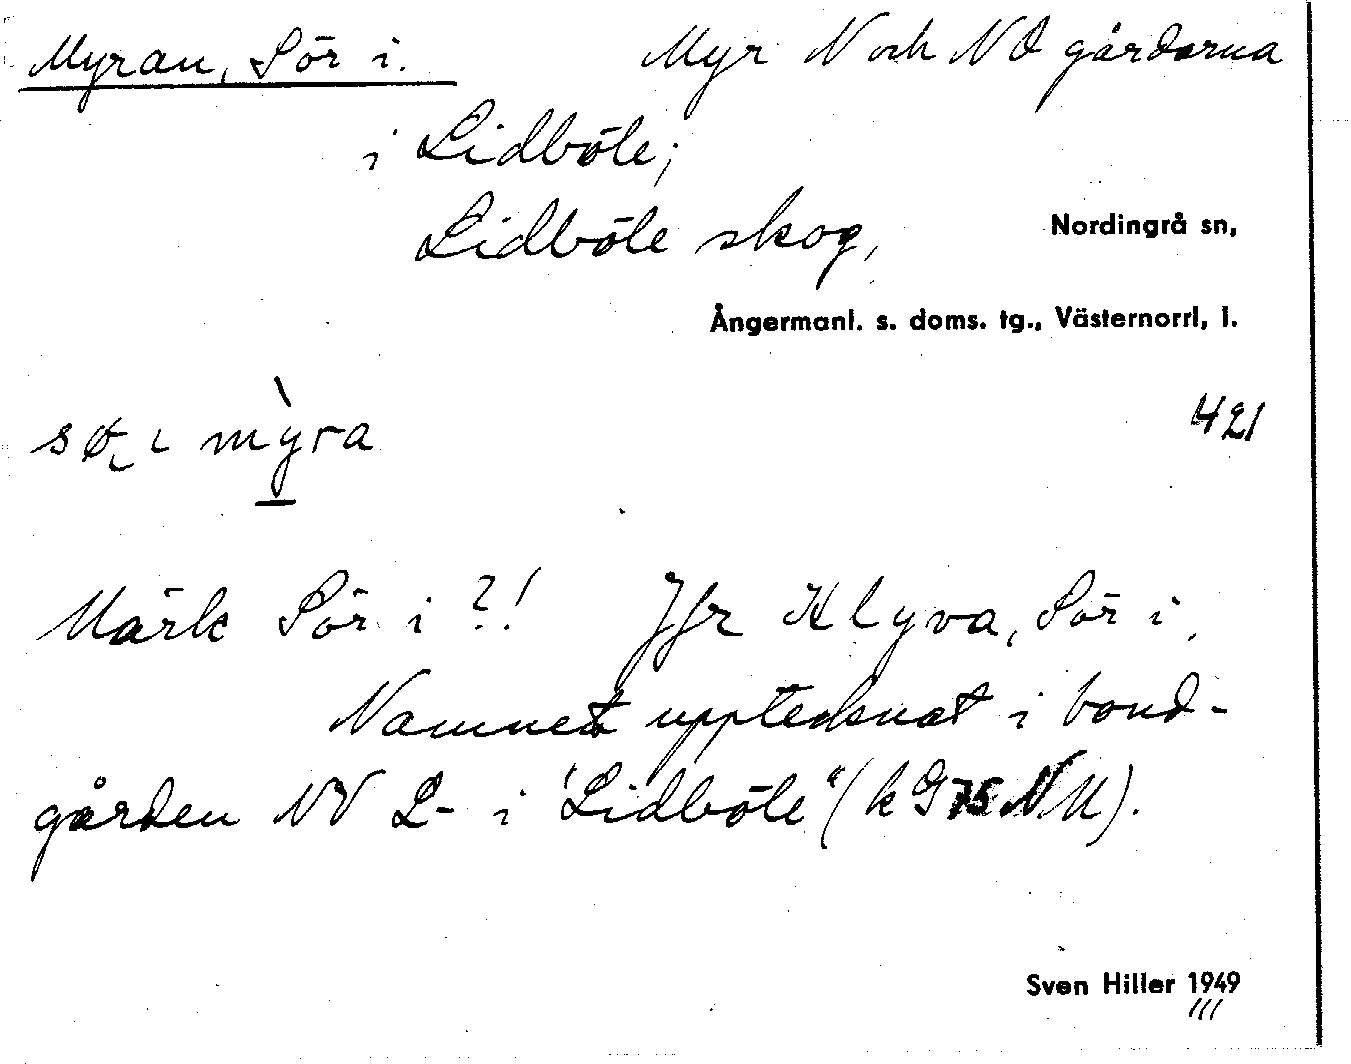 Myran, Sör i. Myr N och NO gårdarna
i Lidböle;
Lidböle skog,
Nordingrå sn,
Ångermanl. s. doms. tg., Västernorrl, l.
421
i mỳra
Märk Sör i ?! Jfr Klyva, Sör i,
Namnet upptecknat i bond-
gården NV L- i "Lidböle" (k G 75 NU).
Sven Hiller 1949